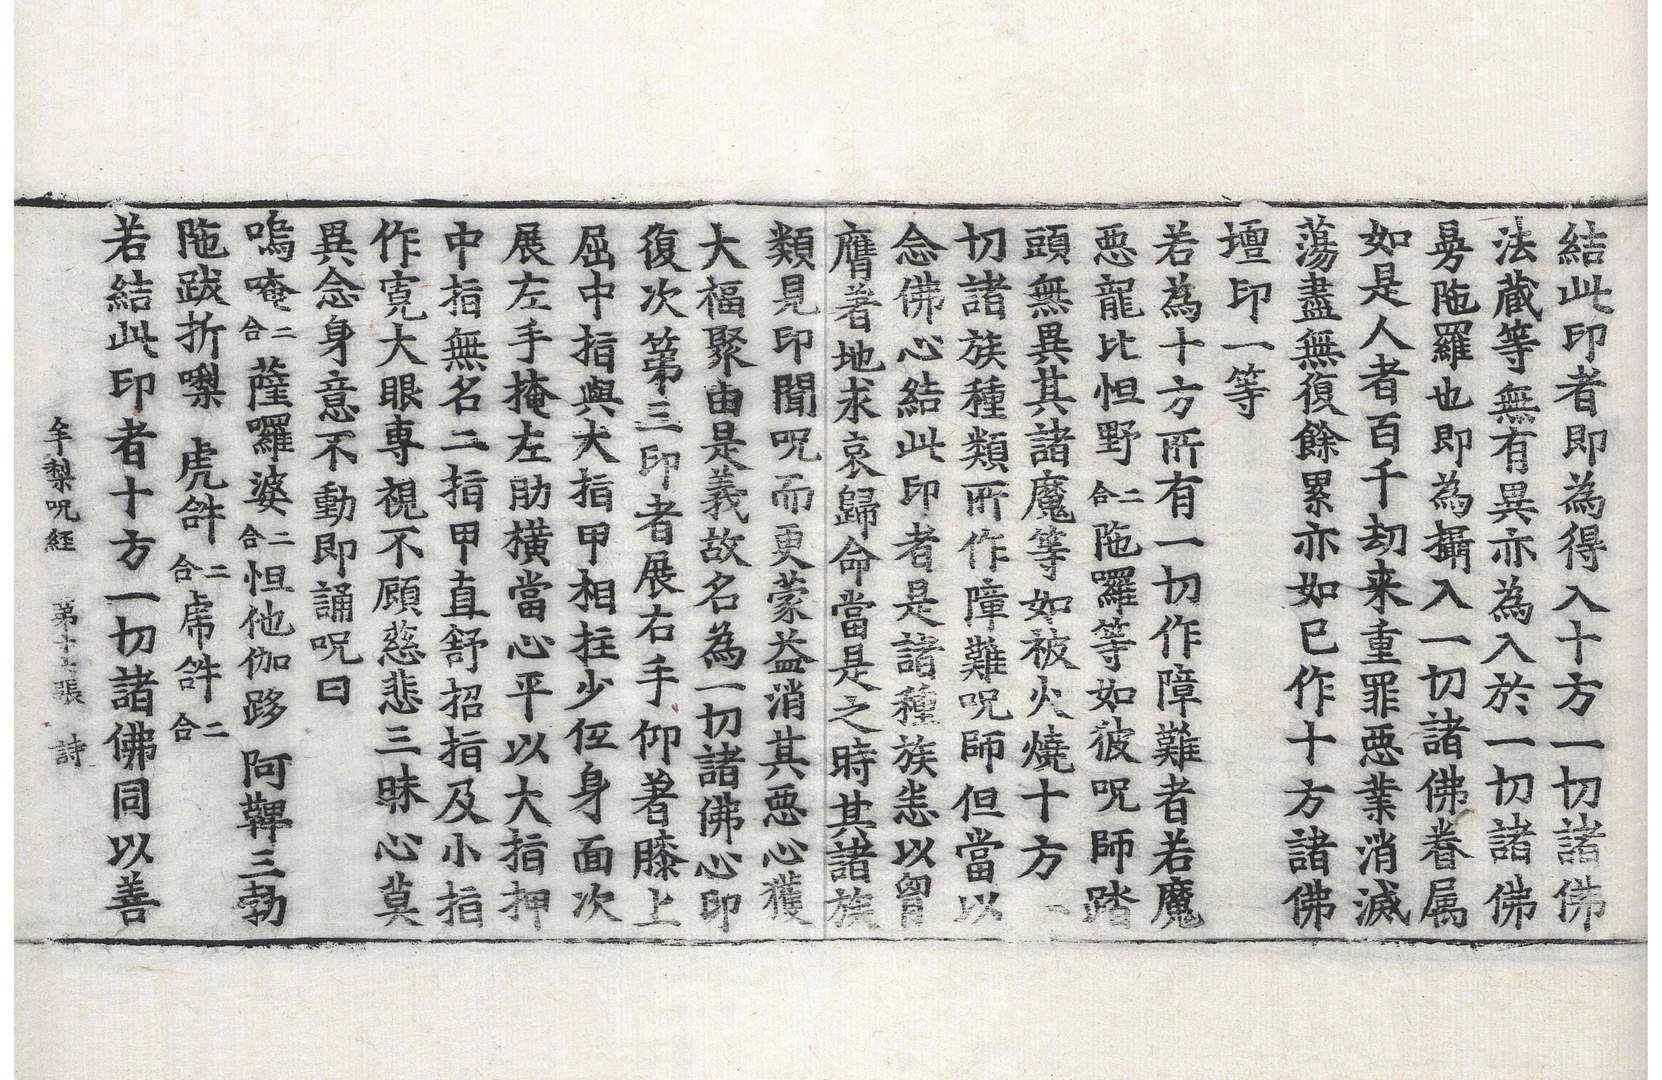 結此印者即為得入十方一切諸佛
法蔵等無有異亦為入於一切諸佛
㝵陁羅也即為攝入一切諸佛眷属
如是人者百千劫来重罪惡業消滅
蕩盡無復餘累亦如已作十方諸佛
壇印一等
若為十方所有一切作障難者若魔
惡龍比怛野二合陁羅等如彼呪師踏
頭無異其諸魔等如被火燒十方一
切諸族種類所作障難呪師但當以
念佛心結此印者是諸種族恙以胷
膺著地求哀歸命當是之時其諸族
類見印聞呪而更蒙益消其惡心獲
大福聚由是義故名為一切諸佛心印
復次第三印者展右手仰著膝上
屈中指與大指甲相拄少伍身面次
展左手掩左肋橫當心平以大指押
中指無名二指甲直舒招指及小指
作寛大眼専視不顧慈悲三昧心莫
異念身意不動即誦呪曰
嗚唵二合薩囉婆二合怛他伽跢 阿鞞三勃
陁跋折㘑 虎𤙖二合虎𤙖二合
若結此印者十方一切諸佛同以善
牟梨呪経 第十六張 詩